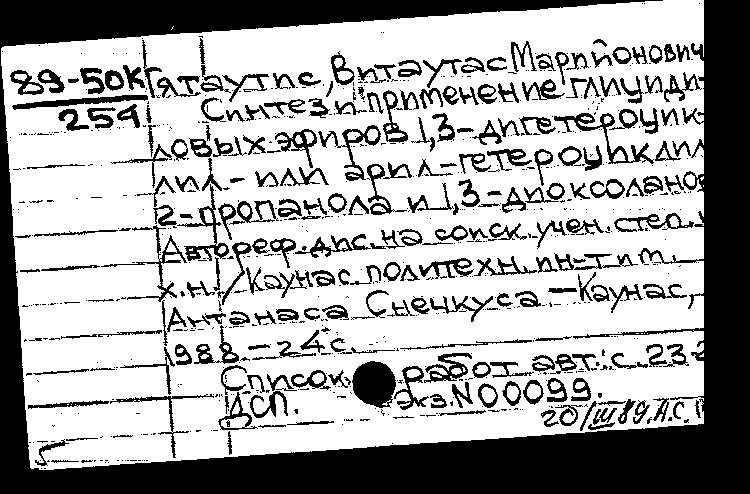 89-50к Гятаутис, Витаутас Марийонович
254 Синтез и применение глициди-
ловых эфиров 1,3-дигетероцик-
лил- или арил-гетероциклил
2-пропанола и 1,3-диоксоланов
Автореф. дис. на соиск. учен. степ. к
х.н. / Каунас. политехн. ин-т им.
Антанаса Снечкуса - Каунас,
1988. - 24 с.
Список работ авт.: с. 23-2
ДСП. Экз. N 00099.
20/III 89. А.С.